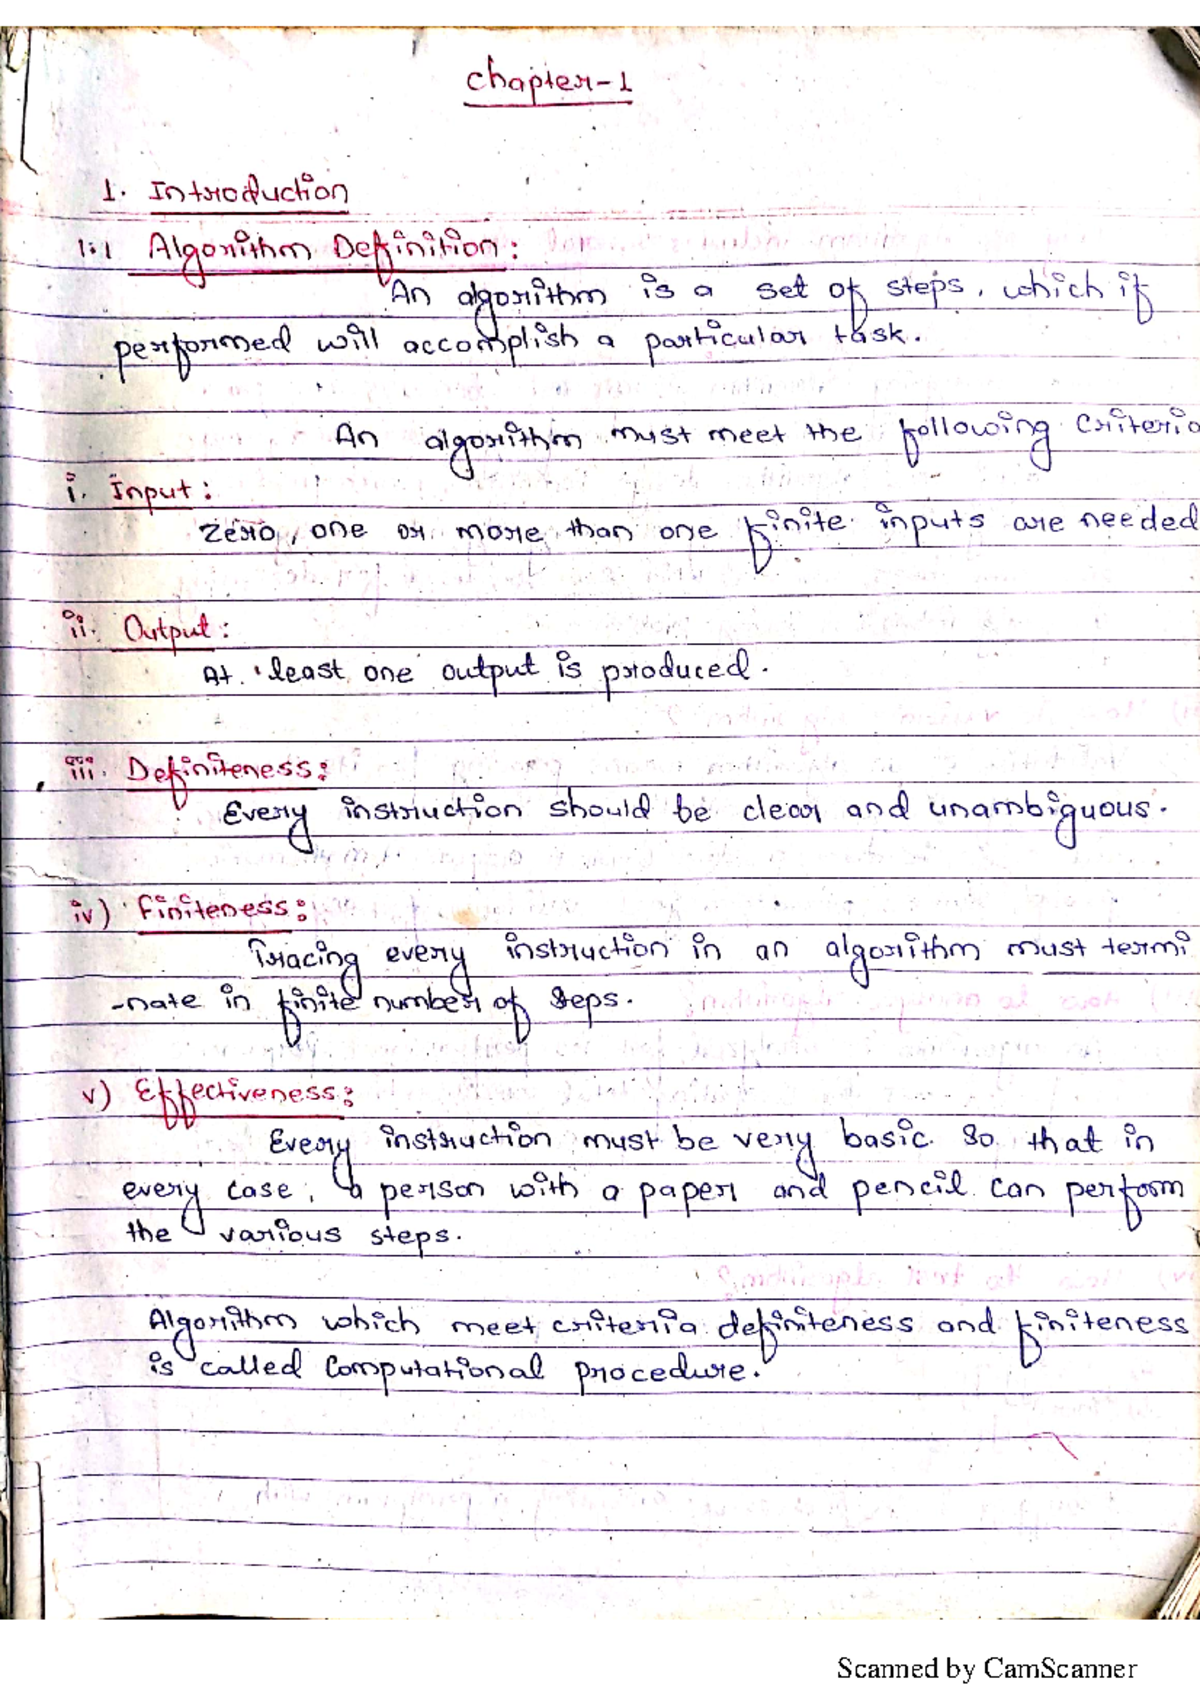 Chapter-1
1. Introduction
1.1 Algorithm Definition:
An algorithm is a set of steps, which if
performed will accomplish a particular task.
An algorithm must meet the following Criteria
i. Input:
Zero, one or more than one finite inputs are needed
ii. Output:
At least one output is produced.
iii. Definiteness:
Every instruction should be clear and unambiguous.
iv) Finiteness:
Tracing every instruction in an algorithm must termi
-nate in finite number of steps.
v) Effectiveness:
Every instruction must be very basic so that in
every case, a person with a paper and pencil can perform
the various steps.
Algorithm which meet criteria definiteness and finiteness
is called Computational procedure.
Scanned by CamScanner